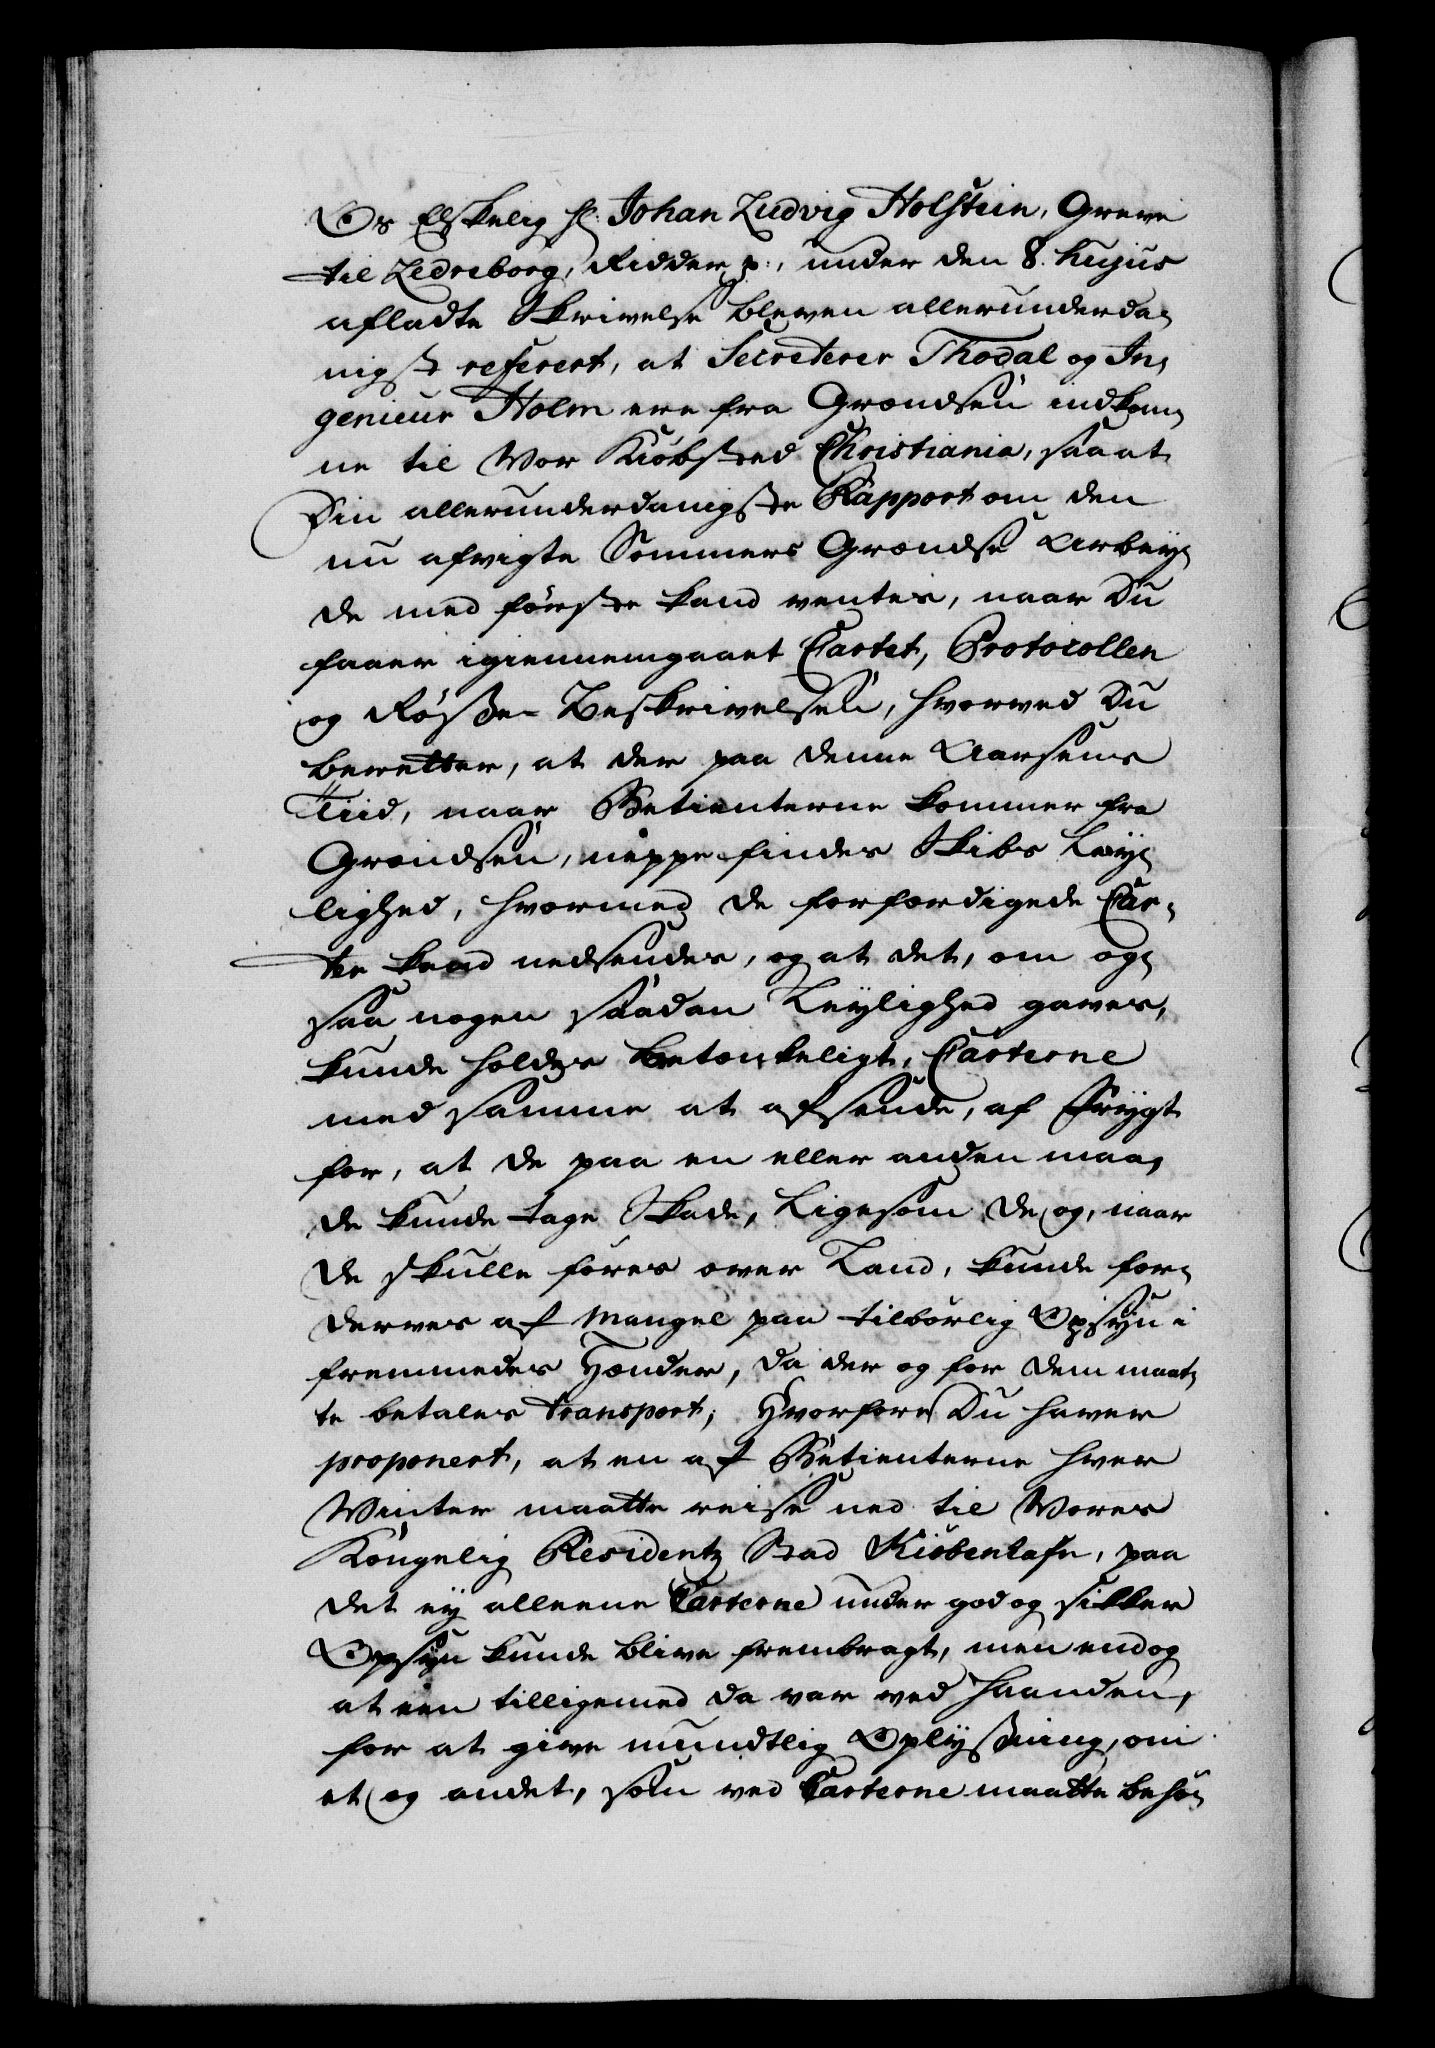 Os Elskelig Hr. Johan Ludvig Holstein, Greve
til Ledreborg, Ridder p:, under den 8. hujus
afladte Skrivelse bleven allerunderda-
nigst referert, at Secreterer Thodal og In-
genieur Holm ere fra Grændsen indkom-
ne til Vor Kiöbsted Christiania, saa at
Din allerunderdanigste Rapport om den
nu afvigte Sommers Grændse Arbey-
de med förste kand ventes, naar Du
faaer igiennemgaaet Cartet, Protocollen
og Röse-Beskrivelsen, hvorved Du
beretter, at der paa denne Aarsens
Tiid, naar Betienterne kommer fra
Grændsen, neppe findes Skibs Ley-
lighed, hvormed de forfærdigede Car-
ter kand nedsendes, og at det, om og-
saa nogen saadan Leylighed gaves,
kunde holdes betænkeligt, Carterne
med samme at afsende, af Frygt
for, at de paa en eller anden maa-
de kunde tage Skade, Ligesom de og, naar
de skulle föres over Land, kunde for-
derves af Mangel paa tilbörlig Opsyn i
fremmedes Hænder, da der og for dem maat-
te betales Transport; Hvorfore Du haver
proponert, at en af Betienterne hver
Winter maatte reise ned til Vores
Kongelig Residentz Stad Kiöbenhafn, paa
det ey alleene Carterne under god og sikker
Opsyn kunde blive frembragt, men endog
at een tilligemed da var ved Haanden,
for at give mundtlig Oplysning, om
et og andet, som ved Carterne maatte behö-